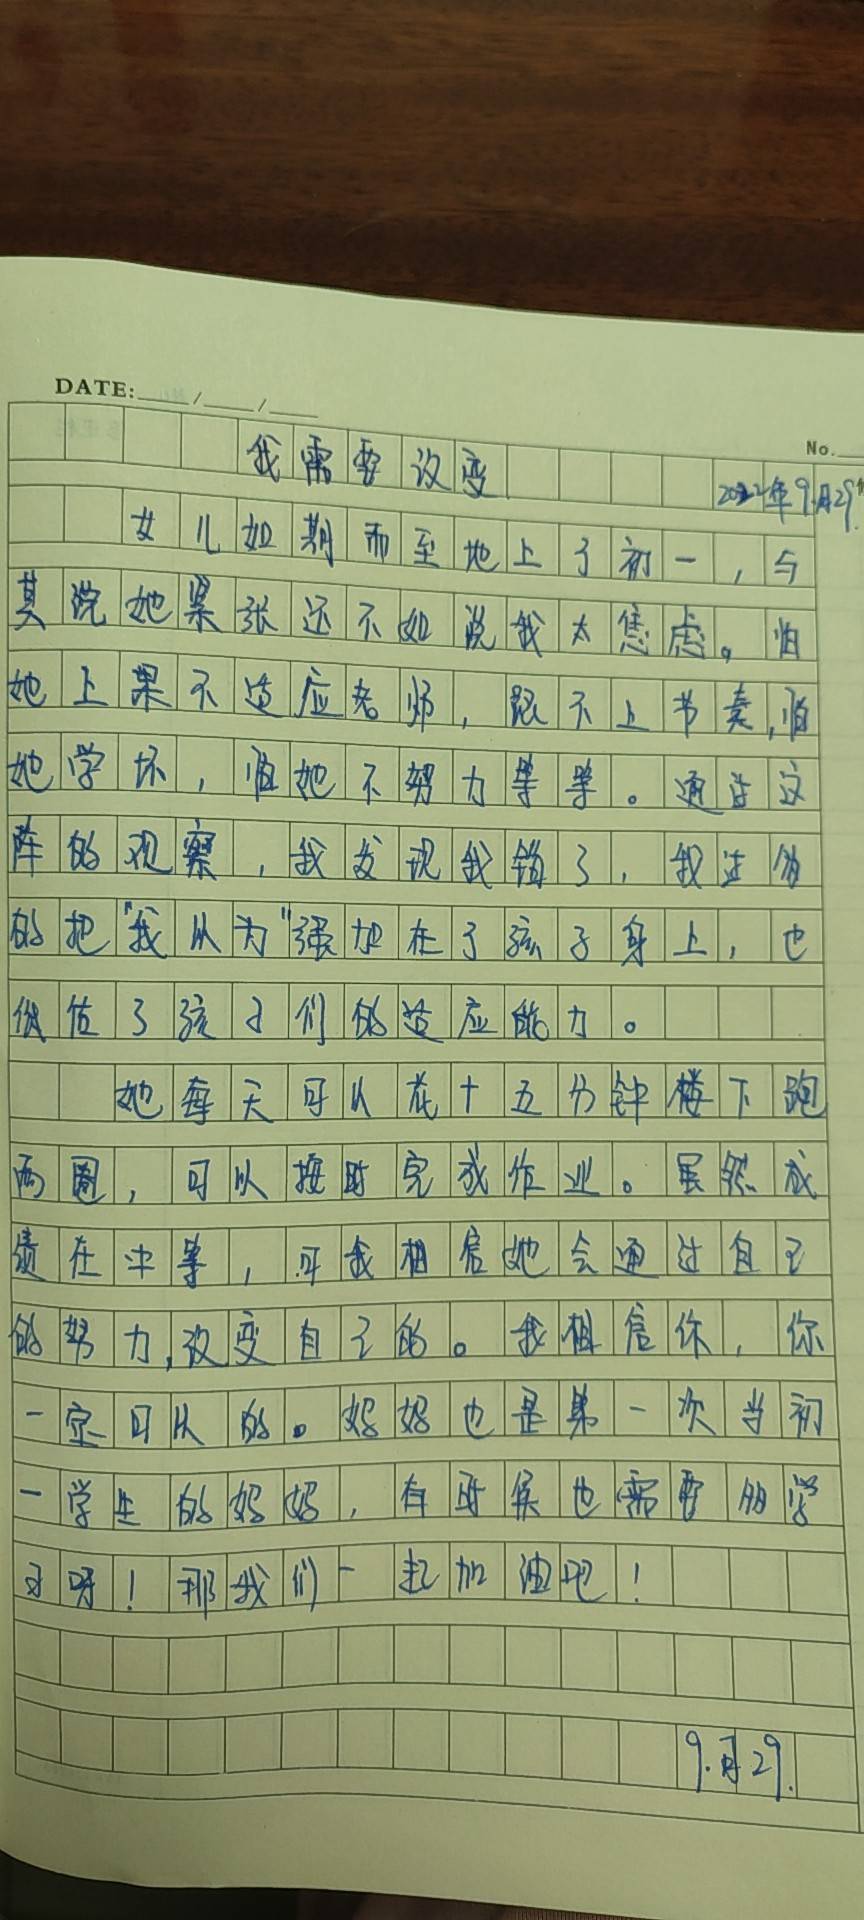 DATE: / /
No.
我需要改变
2022年9.月29
女儿如期而至地上了初一，与
其说她紧张还不如说我太焦虑。怕
她上课不适应老师，跟不上节奏，怕
她学坏，怕她不努力等等。通过这
阵的观察，我发现我错了，我过多
的把“我以为”强加在了孩子身上，也
低估了孩子们的适应能力。
她每天可以花十五分钟楼下跑
两圈，可以按时完成作业。虽然成
绩在中等，可我相信她会通过自己
的努力，改变自己的。我相信你，你
一定可以的。妈妈也是第一次当初
一学生的妈妈，有时候也需要多学
习呀！那我们一起加油吧！
9.月29.